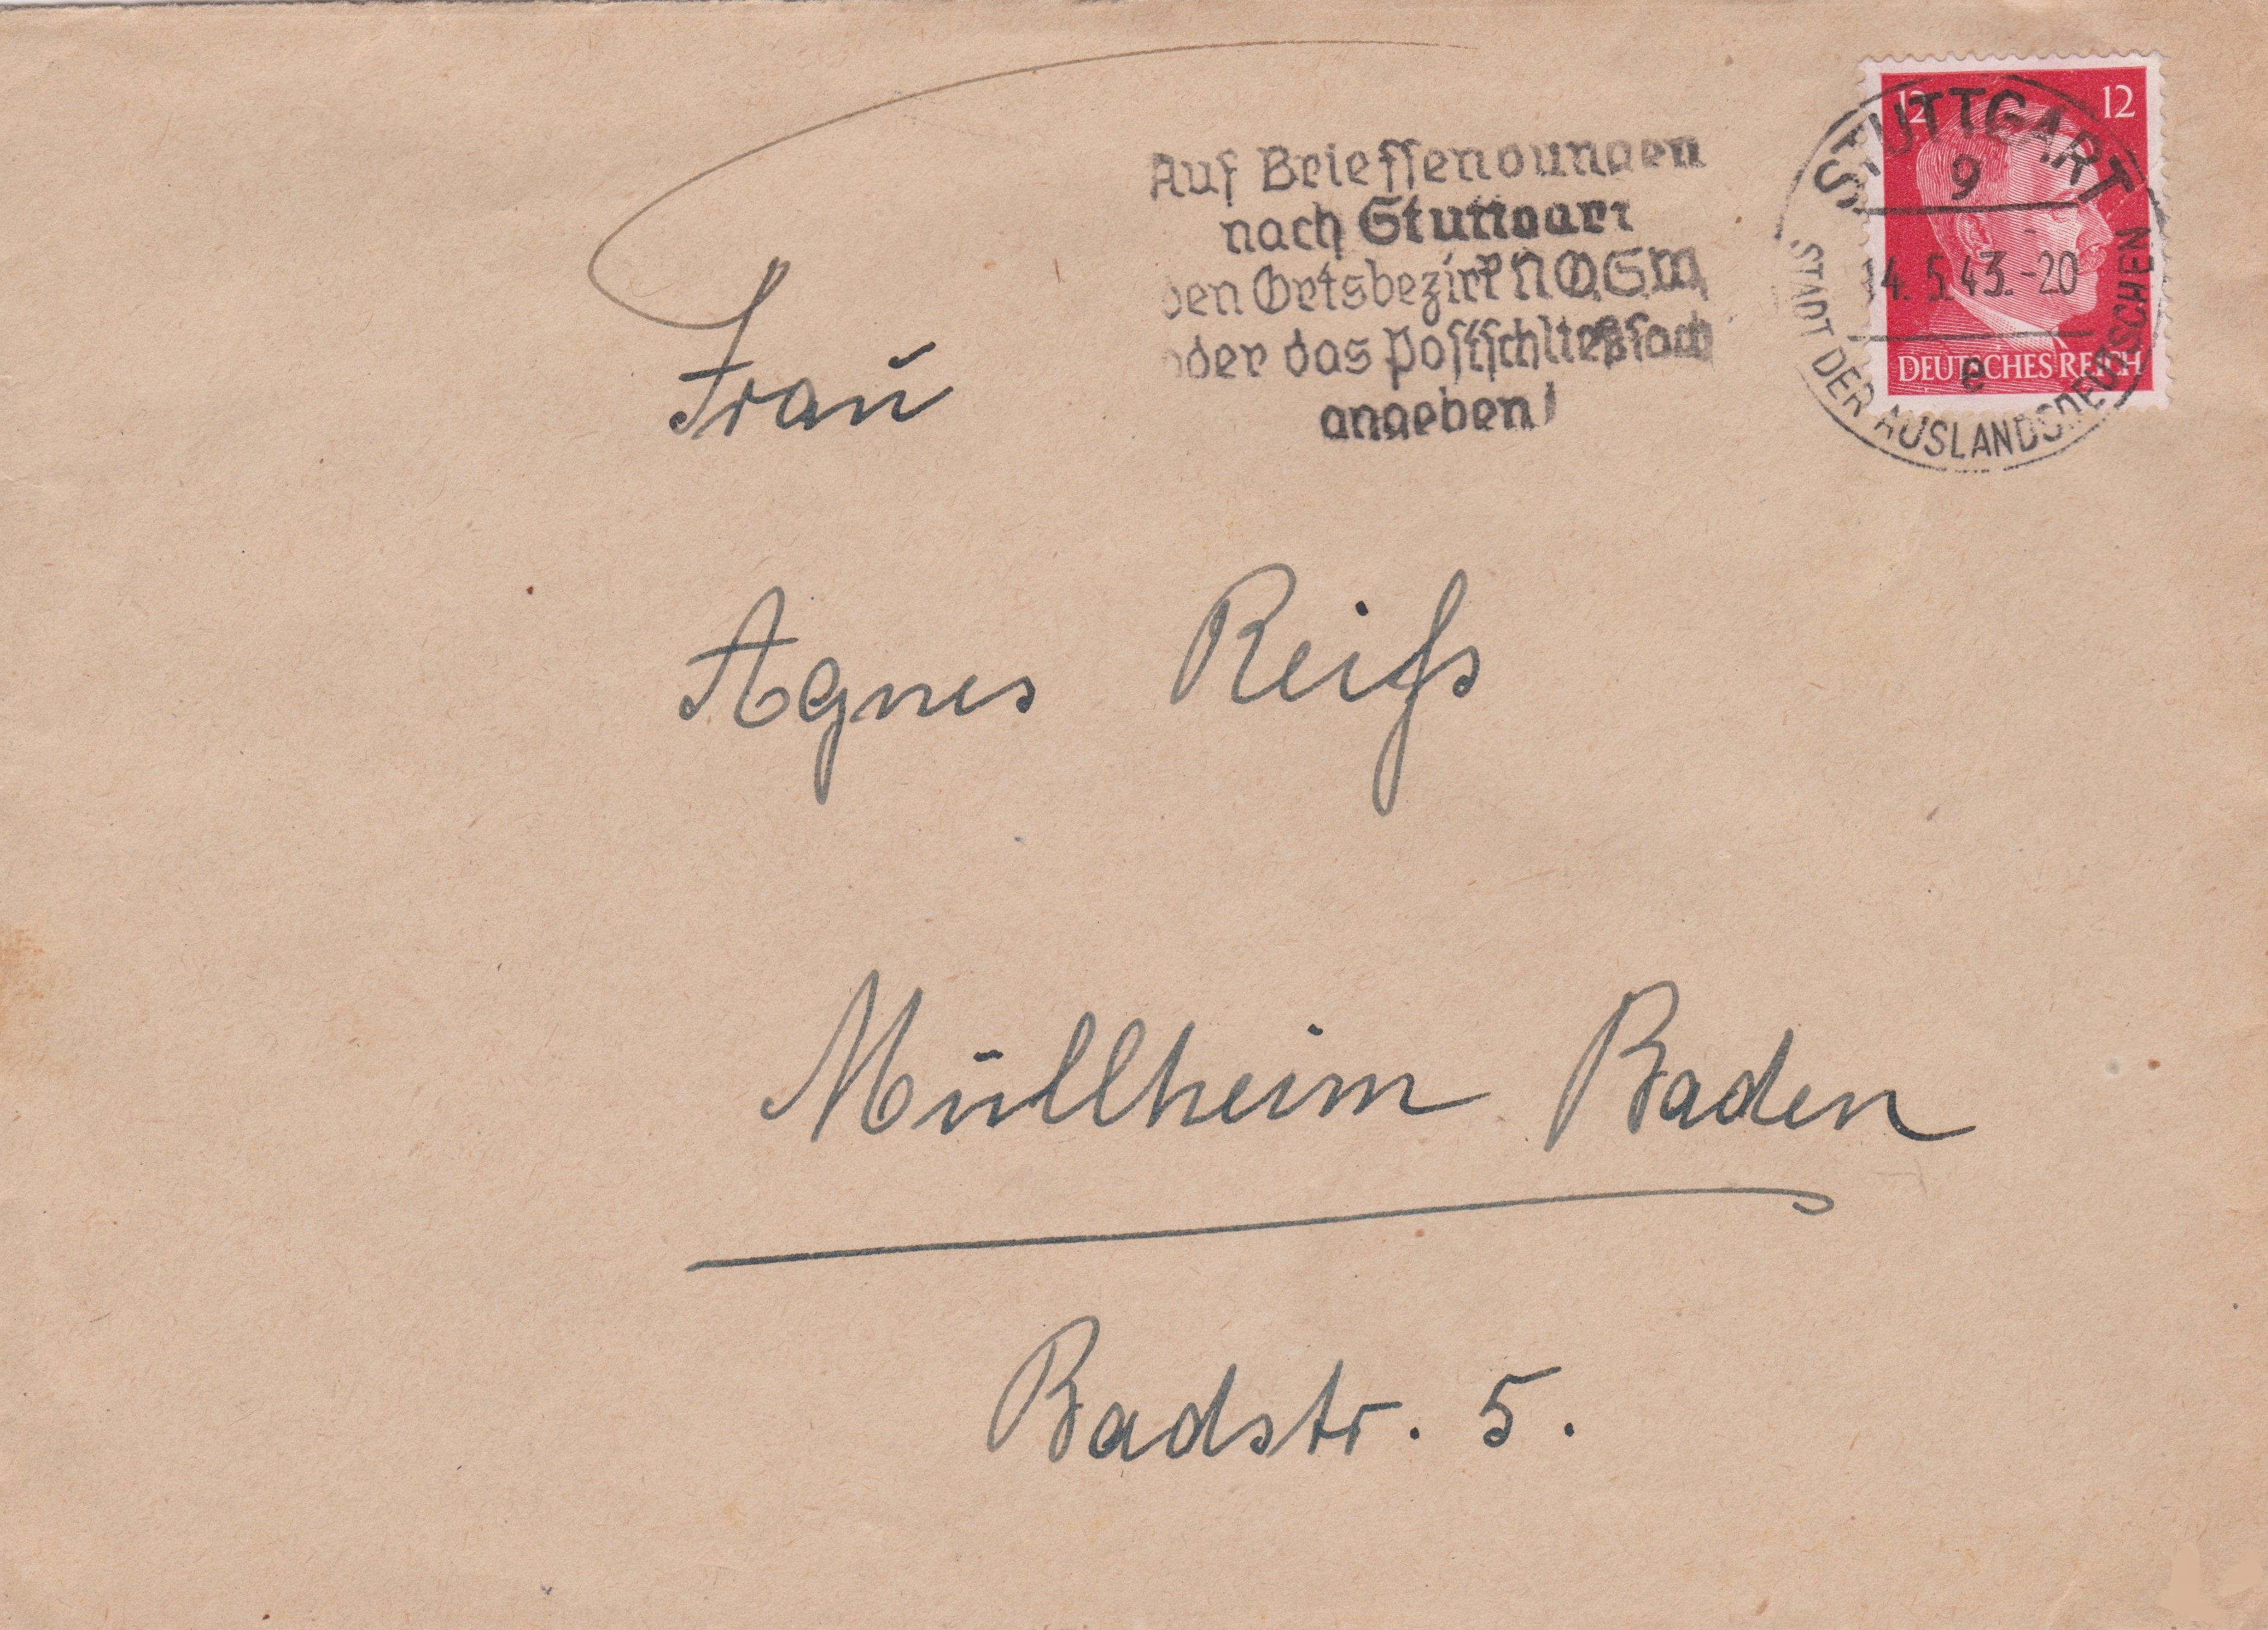 Auf Briefsendungen
nach Stuttgart
den Ortsbezirk N,O,S,W,
oder das Postschließfach
angeben!
12 12
DEUTSCHES REICH
STUTTGART
9
14.5.43.-20
e
STADT DER AUSLANDSDEUTSCHEN
Frau
Agnes Reiß
Müllheim Baden
Badstr. 5.